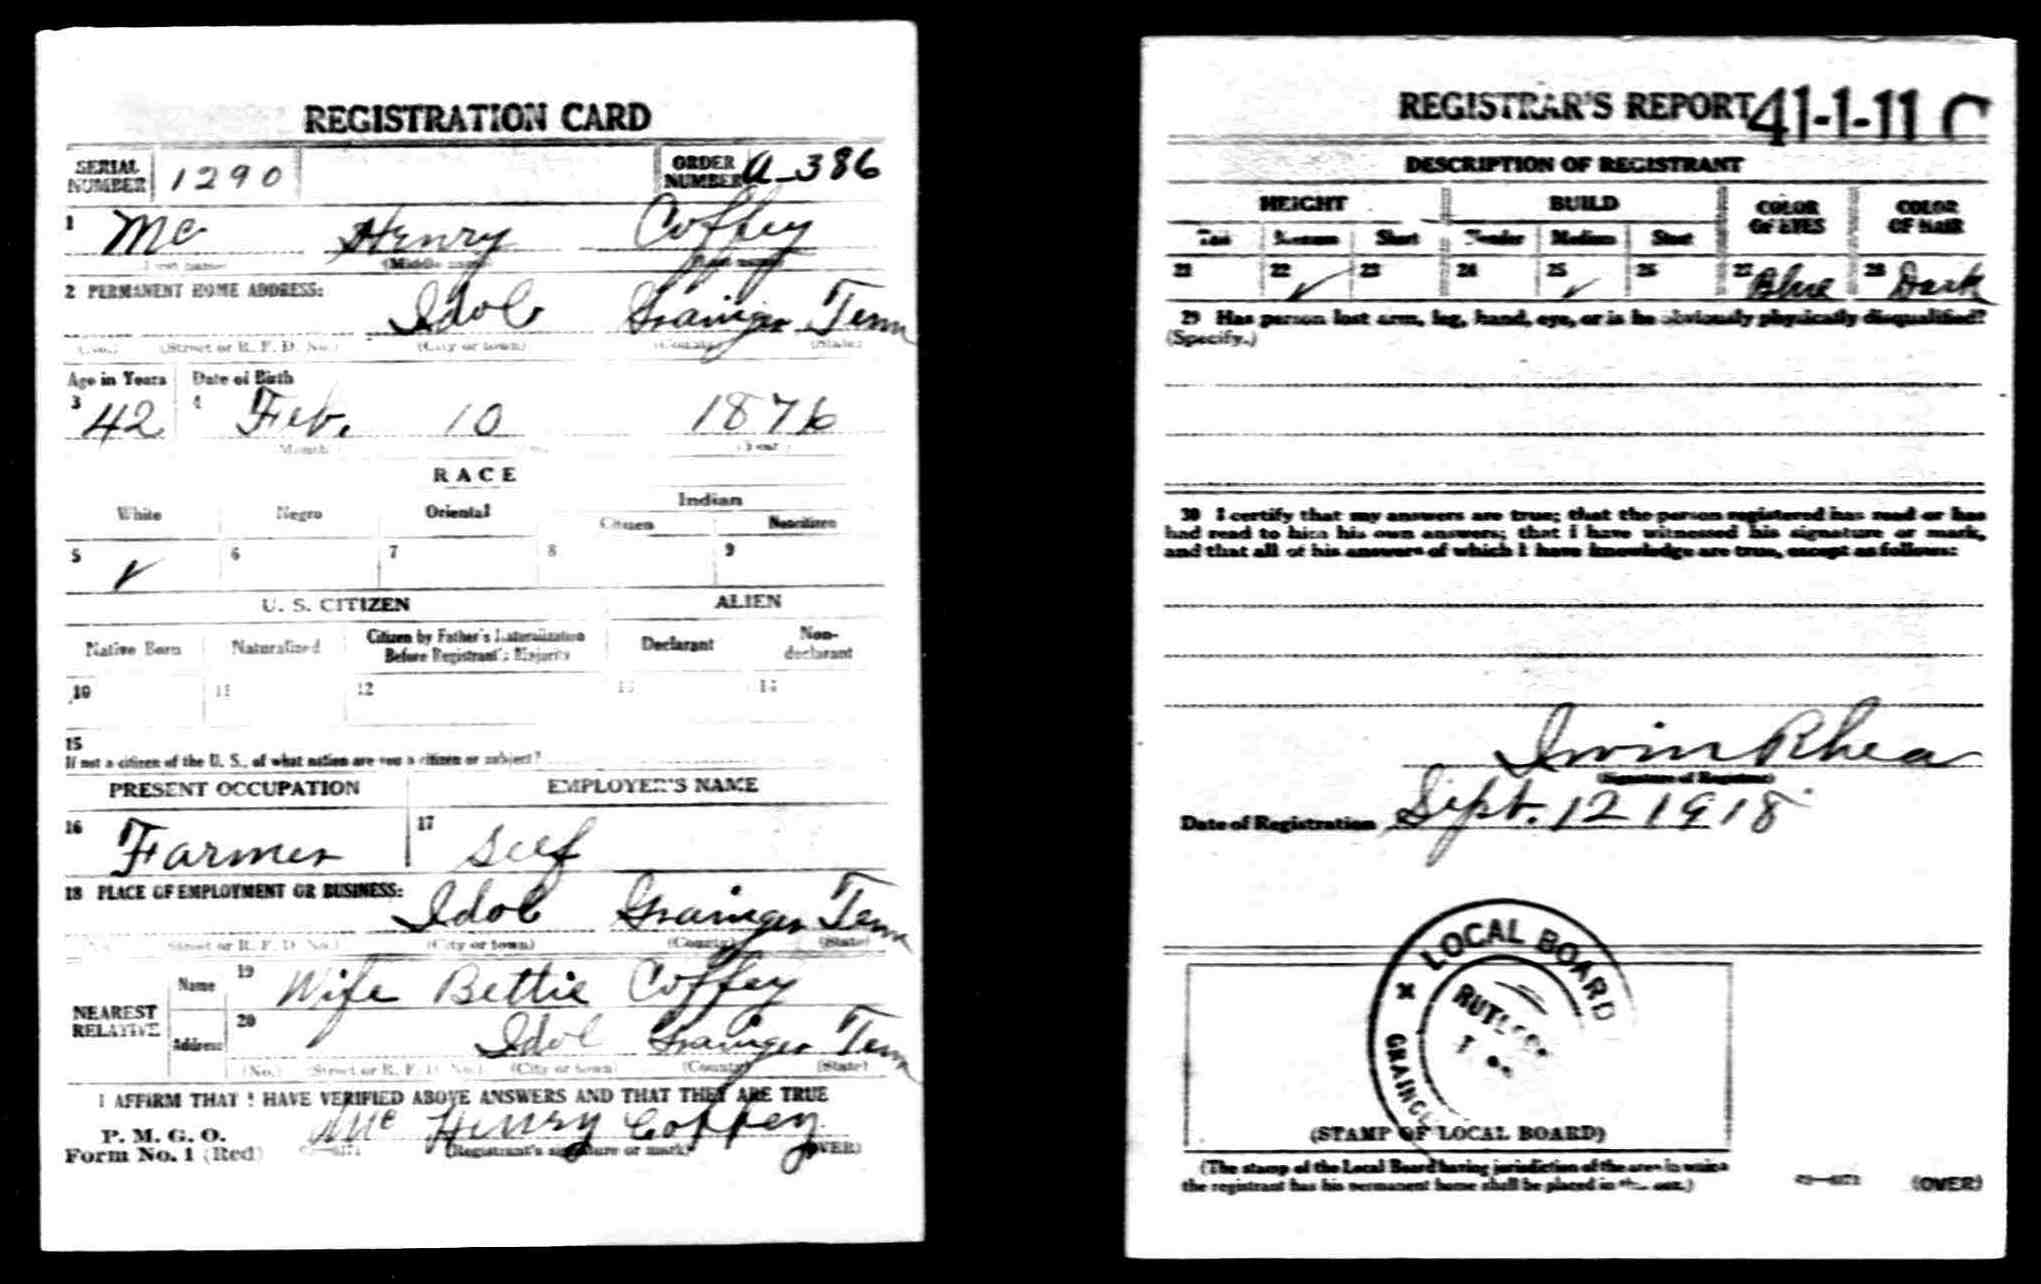 REGISTRATION CARD
SERIAL NUMBER 1290 ORDER NUMBER A-386
1 Mc Henry Coffey
(Middle name)
2 PERMANENT HOME ADDRESS: Idol Grainger Tenn
(No.) (Street or R. F. D. No.) (City or town) (County) (State)
Age in Years Date of Birth
3 42 4 Feb. 10 1876
(Month) (Year)
RACE
White Negro Oriental Indian
Citizen Noncitizen
5 ✓ 6 7 8 9
U. S. CITIZEN ALIEN
Native Born Naturalized Citizen by Father's Naturalization Before Registrant's Majority Declarant Non-declarant
10 11 12 13 14
15
If not a citizen of the U. S., of what nation are you a citizen or subject?
PRESENT OCCUPATION EMPLOYER'S NAME
16 Farmer 17 Self
18 PLACE OF EMPLOYMENT OR BUSINESS: Idol Grainger Tenn
(No.) (Street or R. F. D. No.) (City or town) (County) (State)
NEAREST RELATIVE Name 19 Wife Bettie Coffey
Address 20 Idol Grainger Tenn
(No.) (Street or R. F. D. No.) (City or town) (County) (State)
I AFFIRM THAT I HAVE VERIFIED ABOVE ANSWERS AND THAT THEY ARE TRUE
P. M. G. O.
Form No. 1 (Red) Mc Henry Coffey
(Registrant's signature or mark) (OVER)
REGISTRAR'S REPORT 41-1-11 C
DESCRIPTION OF REGISTRANT
HEIGHT BUILD COLOR OF EYES COLOR OF HAIR
Tall Medium Short Slender Medium Stout
21 22 ✓ 23 24 25 ✓ 26 27 Blue 28 Dark
29 Has person lost arm, leg, hand, eye, or is he obviously physically disqualified?
(Specify.)
30 I certify that my answers are true; that the person registered has read or has
had read to him his own answers; that I have witnessed his signature or mark,
and that all of his answers of which I have knowledge are true, except as follows:
Irvin Rhea
(Signature of Registrar)
Date of Registration Sept. 12 1918
LOCAL BOARD
GRAINGE
(STAMP OF LOCAL BOARD)
(The stamp of the Local Board having jurisdiction of the area in which
the registrant has his permanent home shall be placed in this box.)
(OVER)